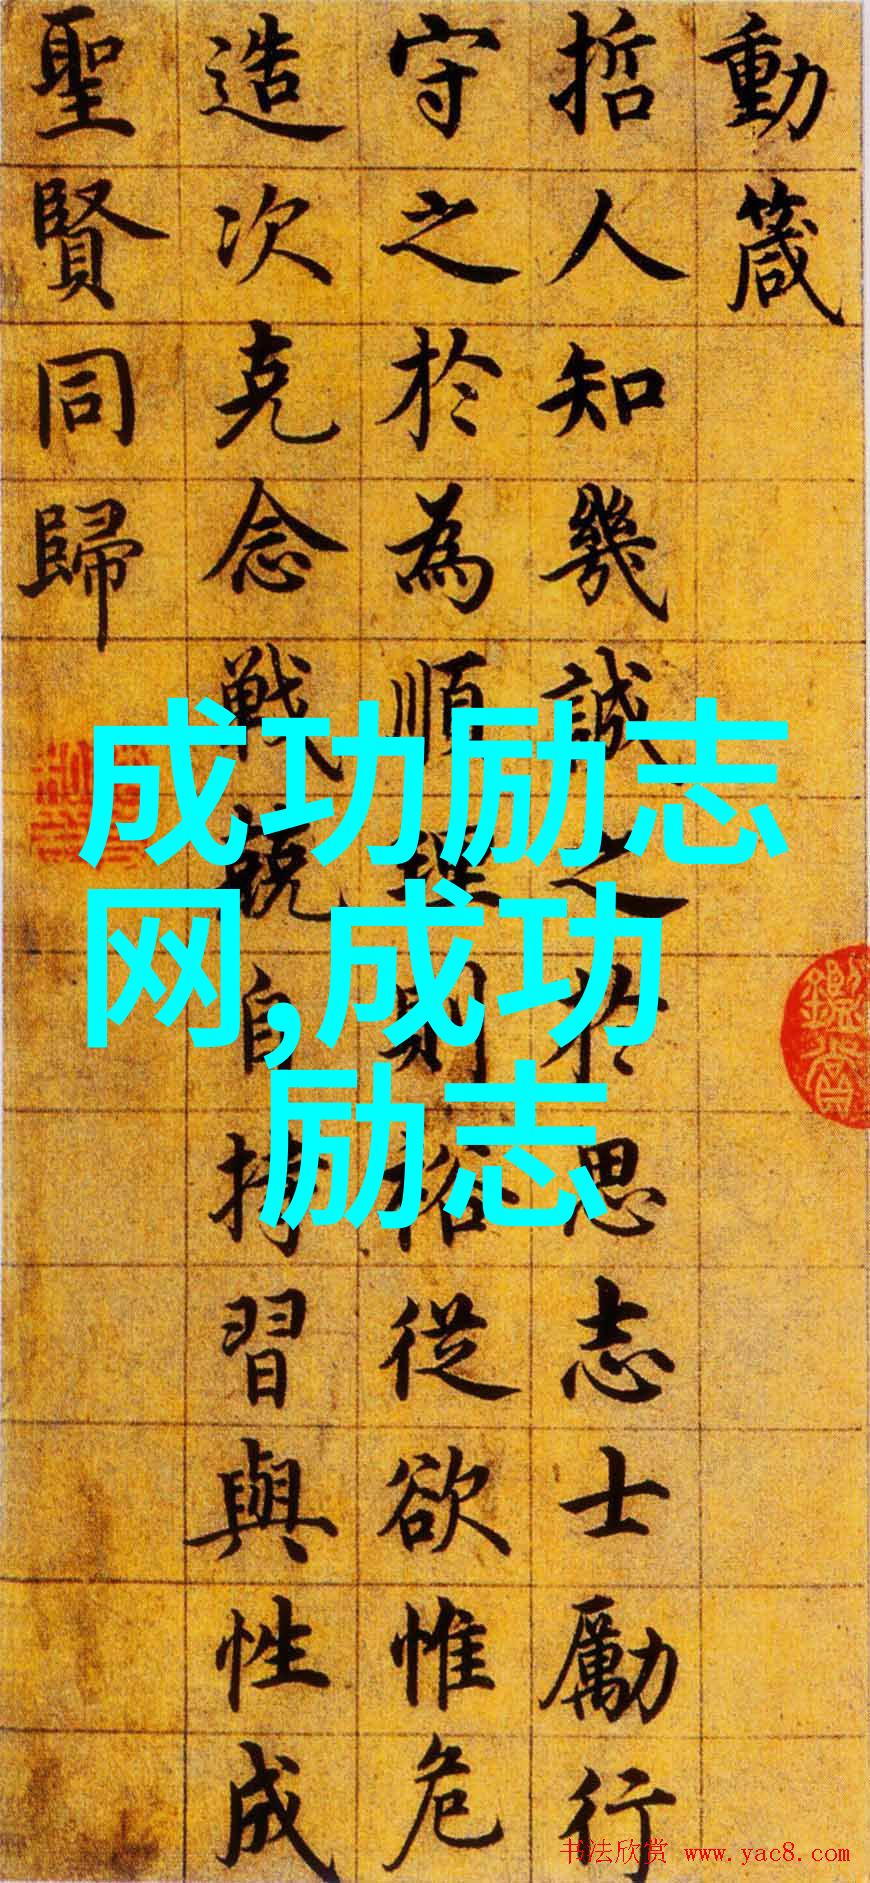 動箴
哲人知幾誠之於思志士勵行
守之於為順理則裕從欲惟危
造次克念戰兢自持習與性成
聖賢同歸
成功励志
网,成功
励志
书法欣赏 www.yac8.com